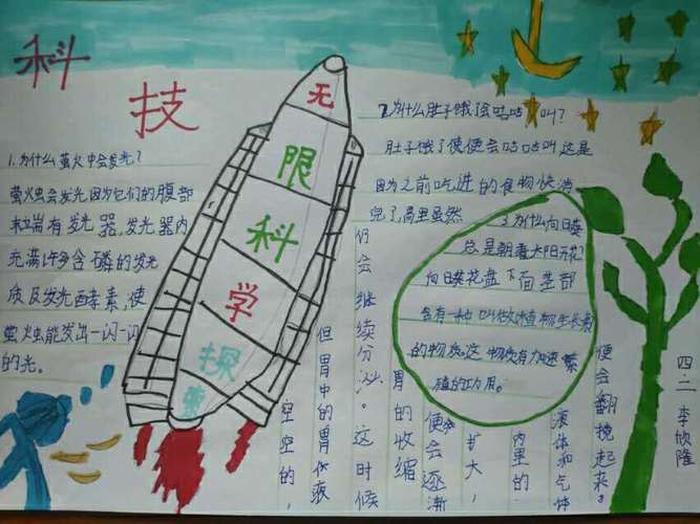 科
技
无
限
科
学
探
索
1.为什么萤火中会发光?
萤火虫会发光因为它们的腹部
末端有发光器,发光器内
充满许多含磷的发光
质及发光酵素,使
萤火虫能发出一闪一闪
的光。
2.为什么肚子饿了会咕咕叫?
肚子饿了便便会咕咕叫这是
因为之前吃进的食物快消
完了,胃里虽然
空空的,
但胃中的胃低液
们会继续分泌。这时候
胃的收缩
便会逐渐
扩大,
内里的
液体和气体
便会翻搅起来。
3.为什么向日葵
总是朝着太阳开花?
向日葵花盘下面茎部
含有一种叫做植物生长素
的物质。这物质有加速繁
殖的功用。
四.二 李欣隆